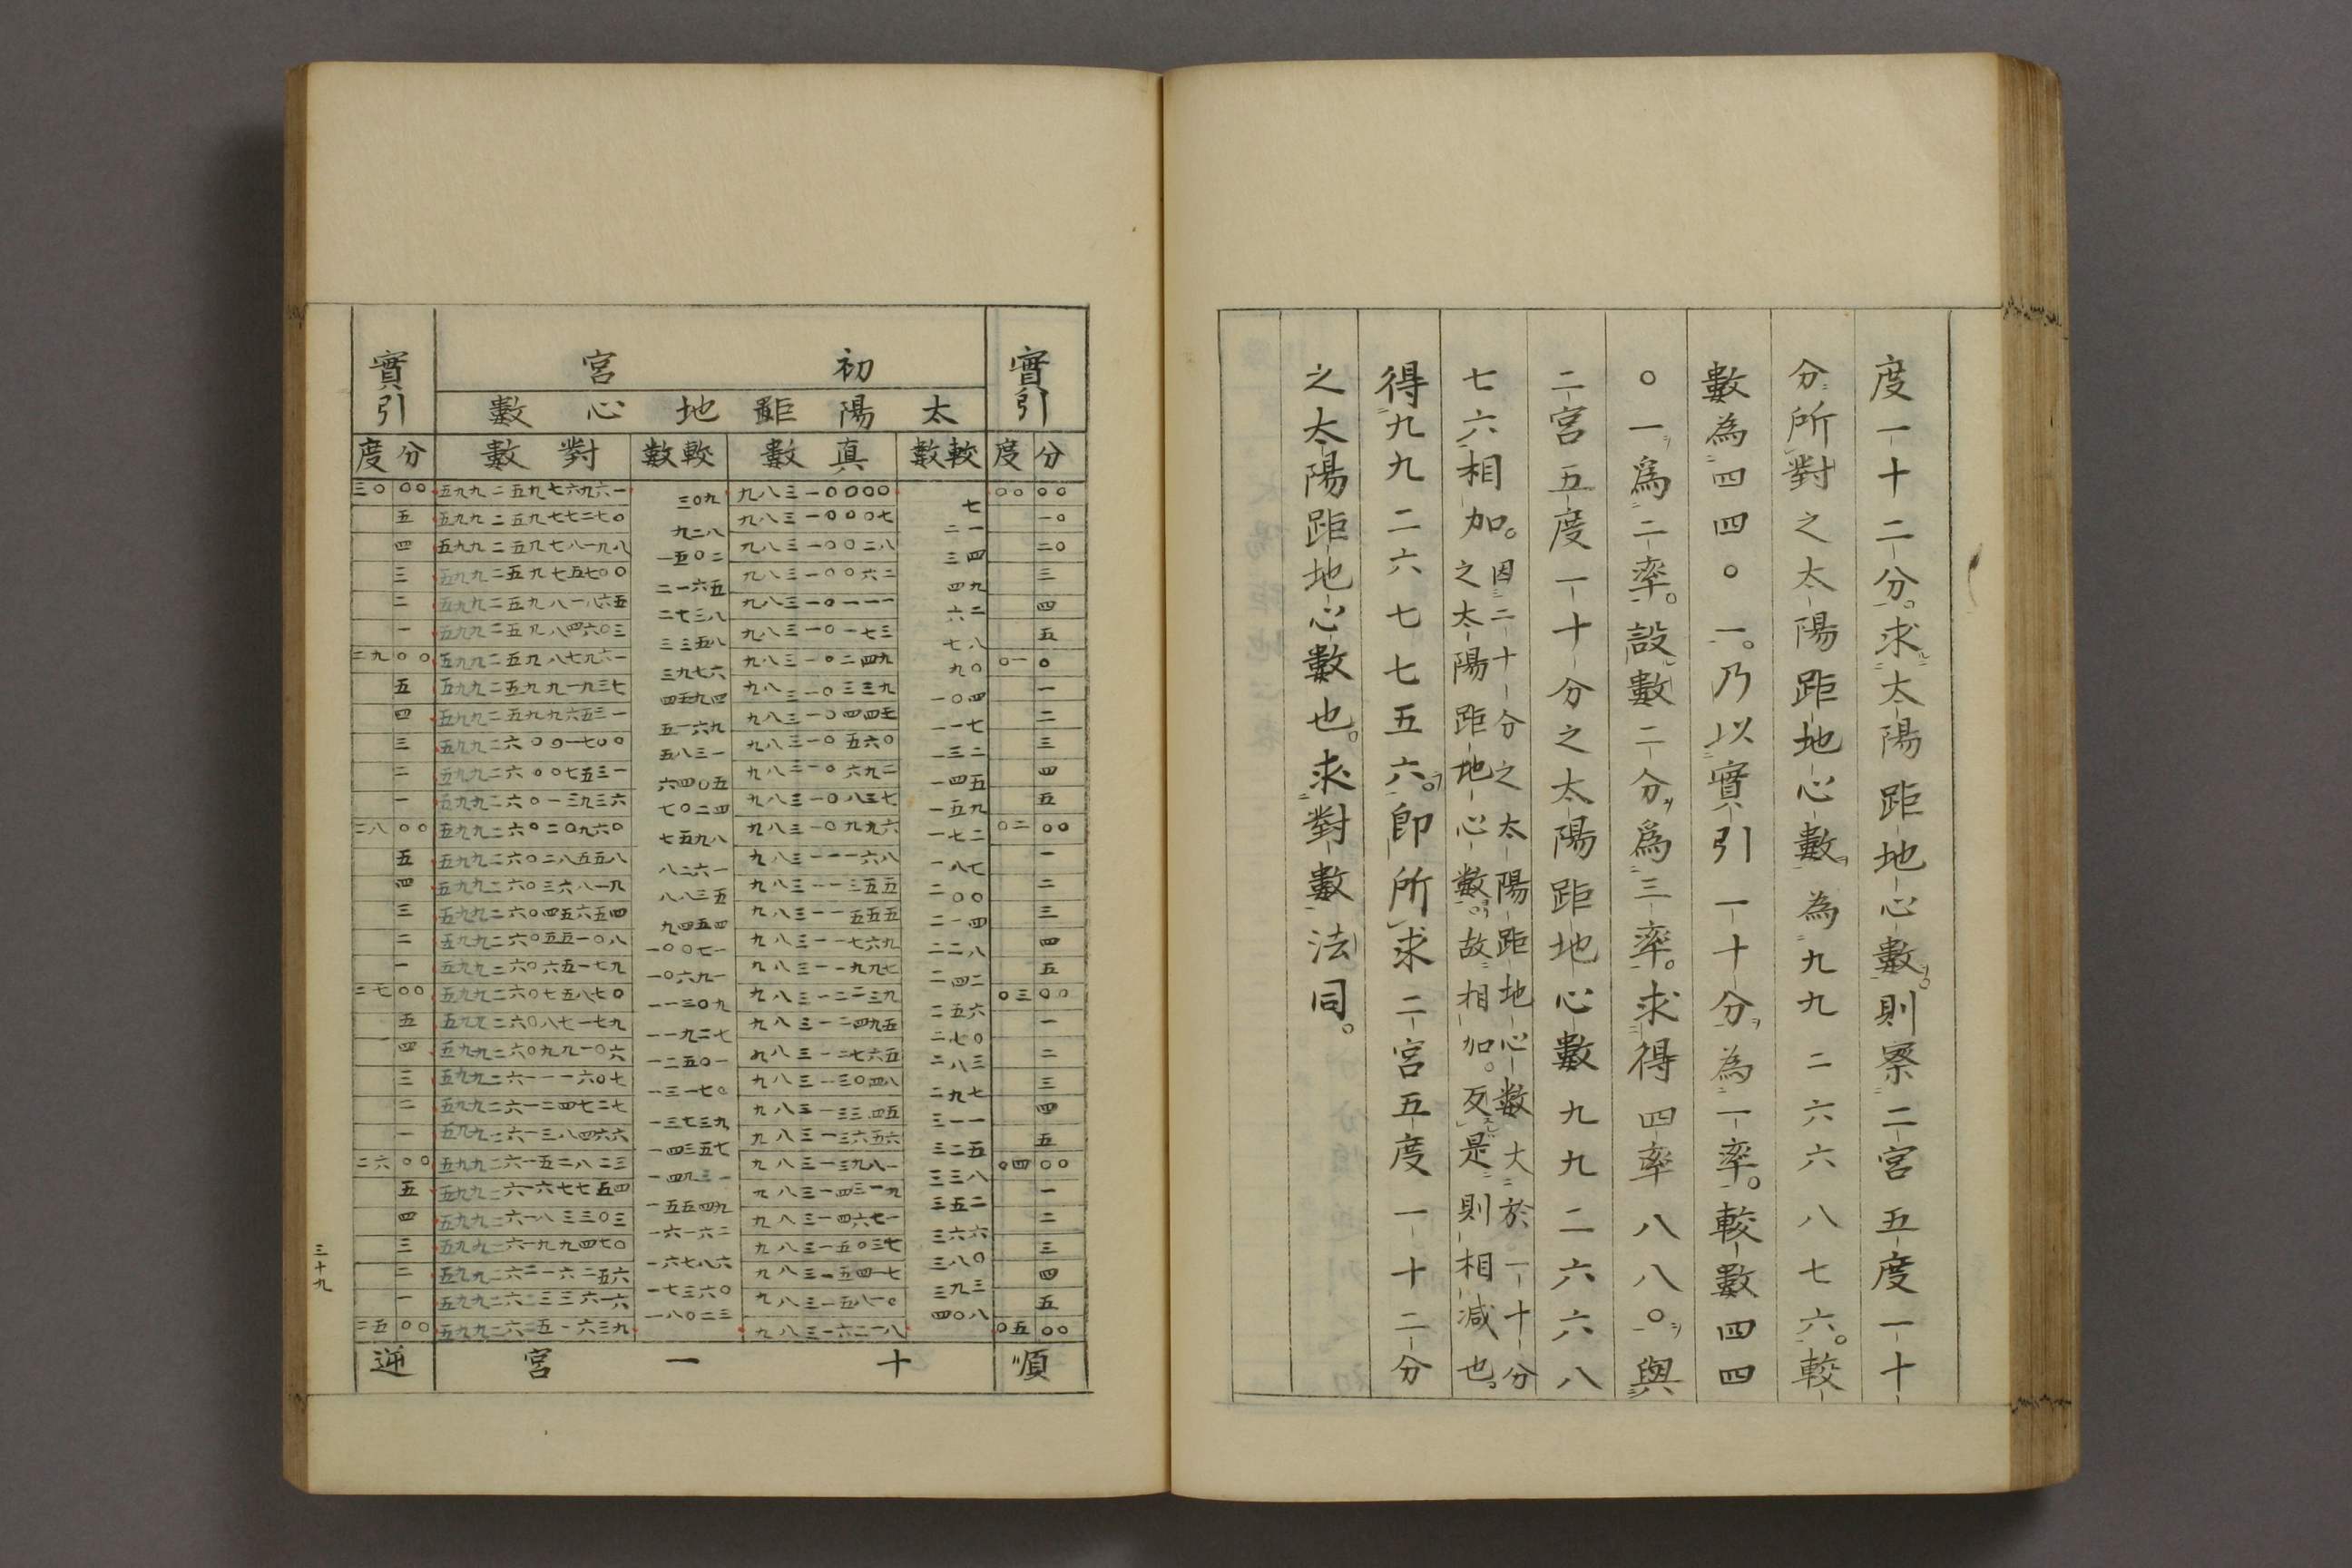 度一十二分求太陽距地心數則察二宮五度一十
分所對之太陽距地心數為九九二六六八七六較
數為四四〇一乃以實引一十分為一率較數四四
〇一爲二率設數二分爲三率求得四率八八〇與
二宮五度一十分之太陽距地心數九九二六六八
七六相加因二十分之太陽距地心數大於一十分
之太陽距地心數故相加反是則相減也
得九九二六七七五六即所求二宮五度一十二分
之太陽距地心數也求對數法同
實引 初宮 實引
太陽距地心數
分 度 較數 真數 較數 對數 分 度
〇〇 〇〇 九八三一〇〇〇〇 五九九二五九七六九六一 〇〇 三〇
七 三〇九
一〇 九八三一〇〇〇七 五九九二五九七七二七〇 五
二一 九二八
二〇 九八三一〇〇二八 五九九二五九七八一九八 四
三四 一五〇二
三 九八三一〇〇六二 五九九二五九七五七〇〇 三
四九 二一六五
四 九八三一〇一一一 五九九二五九八一八六五 二
六二 二七三八
五 九八三一〇一七三 五九九二五九八四六〇三 一
七八 三三五八
〇一 〇 九八三一〇二四九 五九九二五九八七九六一 〇〇 二九
九〇 三九七六
一 九八三一〇三三九 五九九二五九九一九三七 五
一〇四 四五九四
二 九八三一〇四四三 五九九二五九九六五三一 四
一一七 五一六九
三 九八三一〇五六〇 五九九二六〇〇一七〇〇 三
一三二 五八三一
四 九八三一〇六九二 五九九二六〇〇七五三一 二
一四五 六四〇五
五 九八三一〇八三七 五九九二六〇一三九三六 一
一五九 七〇二四
〇二 〇〇 九八三一〇九九六 五九九二六〇二〇九六〇 〇〇 二八
一七二 七五九八
一 九八三一一一六八 五九九二六〇二八五五八 五
一八七 八二六一
二 九八三一一三五五 五九九二六〇三六八一九 四
二〇〇 八八三五
三 九八三一一五五五 五九九二六〇四五六五四 三
二一四 九四五四
四 九八三一一七六九 五九九二六〇五五一〇八 二
二二八 一〇〇七一
五 九八三一一九九七 五九九二六〇六五一七九 一
二四二 一〇六九一
〇三 〇〇 九八三一二二三九 五九九二六〇七五八七〇 〇〇 二七
二五六 一一三〇九
一 九八三一二四九五 五九九二六〇八七一七九 五
二七〇 一一九二七
二 九八三一二七六五 五九九二六〇九九一〇六 四
二八三 一二五〇一
三 九八三一三〇四八 五九九二六一一一六〇七 三
二九七 一三一七〇
四 九八三一三三四五 五九九二六一二四七二七 二
三一一 一三七三九
五 九八三一三六五六 五九九二六一三八四六六 一
三二五 一四三五七
〇四 〇〇 九八三一三九八一 五九九二六一五二八二三 〇〇 二六
三三八 一四九三一
一 九八三一四三一九 五九九二六一六七七五四 五
三五二 一五五四九
二 九八三一四六七一 五九九二六一八三三〇三 四
三六六 一六一六二
三 九八三一五〇三七 五九九二六一九九四七〇 三
三八〇 一六七八六
四 九八三一五四一七 五九九二六二一六二五六 二
三九三 一七三六〇
五 九八三一五八一〇 五九九二六二三三六一六 一
四〇八 一八〇二三
〇五 〇〇 九八三一六二一八 五九九二六二五一六三九 〇〇 二五
順 十一宮 逆
三十九